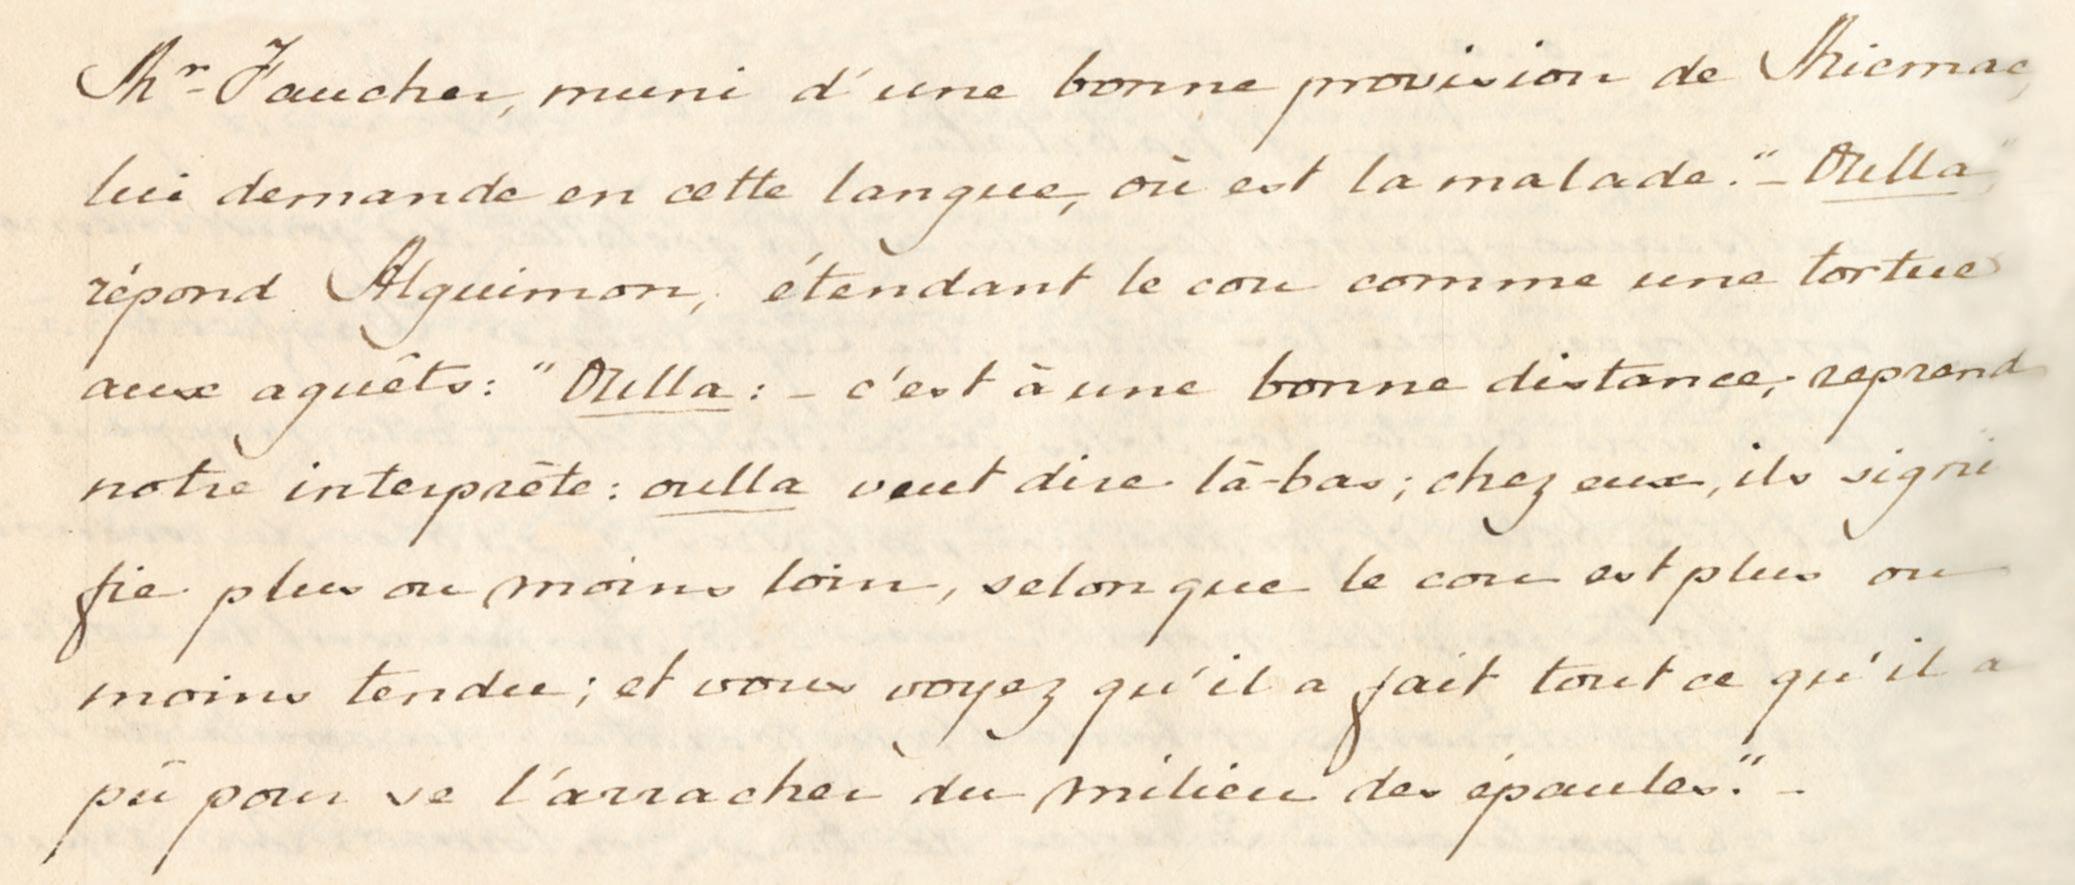 Mr- Faucher, muni d'une bonne provision de Micmac,
lui demande en cette langue, où est la malade." - Oulla,"
répond Alguimon, étendant le cou comme une tortue
aux aguêts: "Oulla: - c'est à une bonne distance, reprend
notre interprète: oulla veut dire là-bas; chez eux, ils signi
fie plus ou moins loin, selon que le cou est plus ou
moins tendu; et vous voyez qu'il a fait tout ce qu'il a
pû pour se l'arracher du milieu des épaules." -